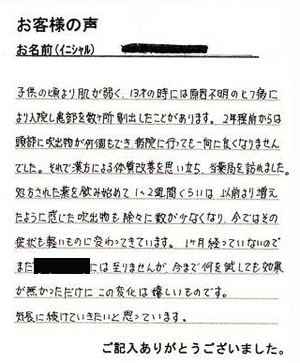 お客様の声
お名前(イニシャル)
子供の頃より肌が弱く、13才の時には原因不明のヒフ病に
より入院し患部を数ヶ所剔出したことがあります。2年程前からは
頭部に吹出物が何個もでき病院に行っても一向に良くなりません
でした。それで漢方による体質改善を思い立ち、当薬局を訪れました。
処方された薬を飲み始めて1〜2週間くらいは以前より増え
たように感じた吹出物も除々に数が少なくなり、今ではその
症状も軽いものに変わってきています。1ヶ月経っていないので
まだ には至りませんが、今まで何を試しても効果
が無かっただけにこの変化は嬉しいものです。
気長に続けていきたいと思っています。
ご記入ありがとうございました。